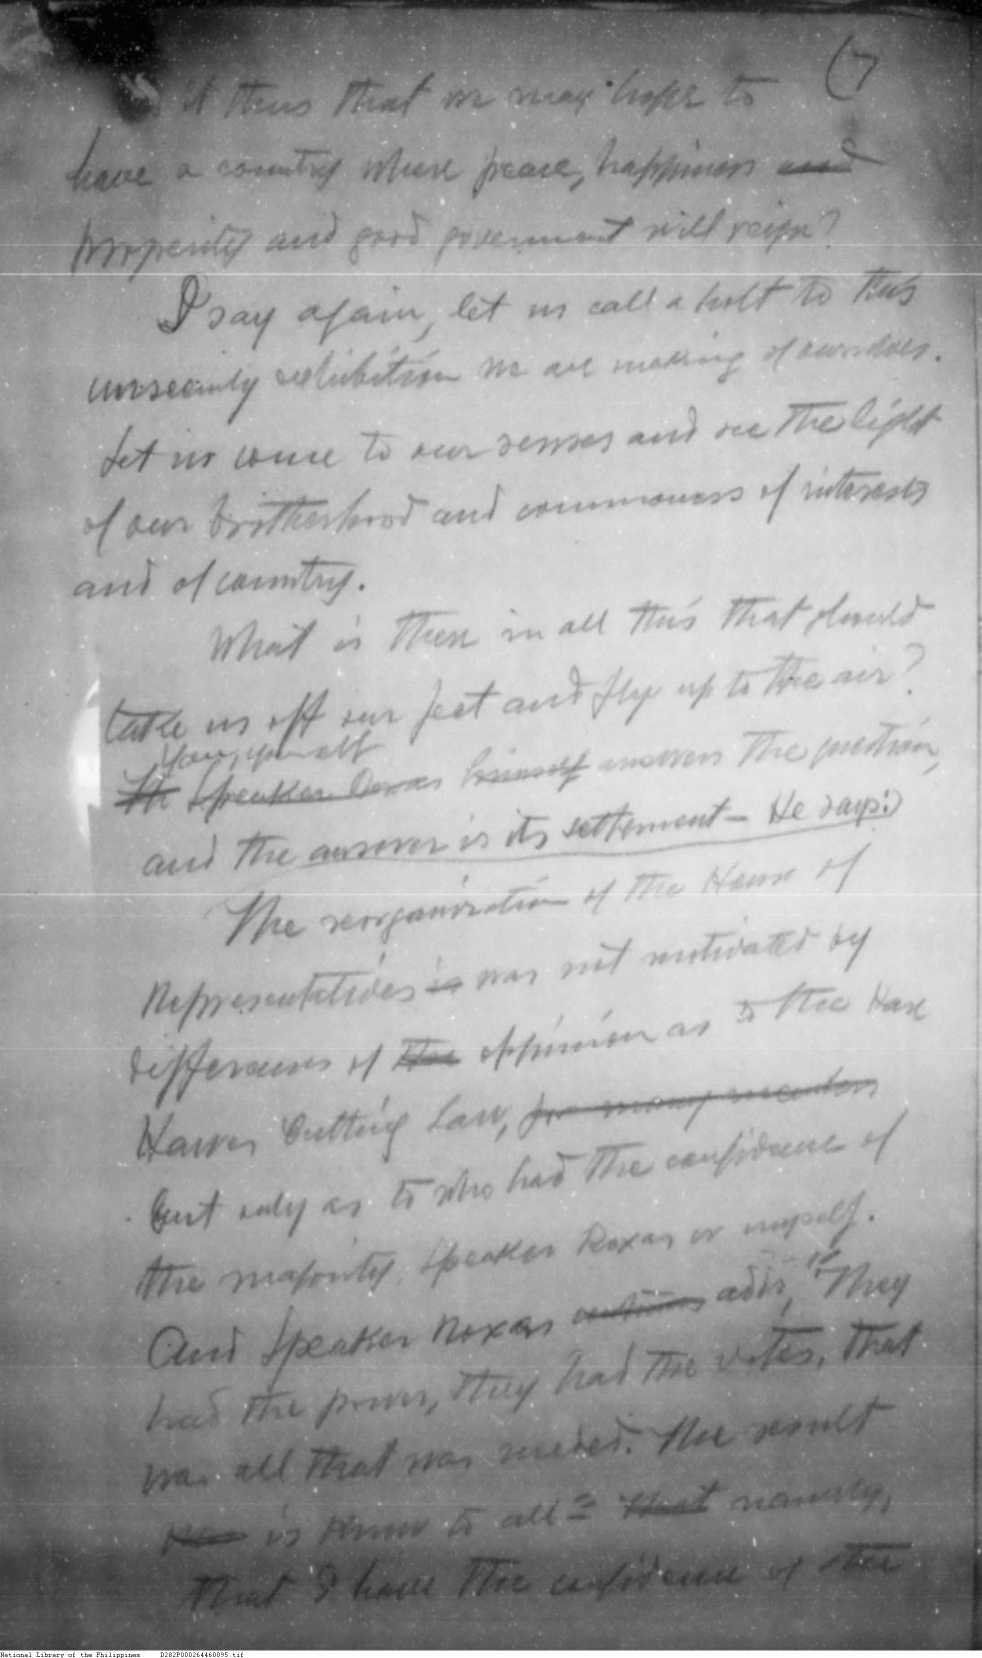 (7
is it thus that we may hope to
have a country where peace, happiness and
prosperity and good government will reign?
I say again, let us call a halt to this
unseemly exhibition we are making of ourselves.
Let us come to our senses and see the light
of our brotherhood and commoness of interests
and of country.
What is there in all this that should
take us off our feet and fly up to the air?
You, yourself
The Speaker Roxas himself answers the question,
and the answer is its settlement — He says:)
The reorganization of the House of
Representatives is was not motivated by
differences of the oppinion as to the Hare
Hawes Cutting Law, for many members
but only as to who had the confidence of
the majority, Speaker Roxas or myself.
And Speaker Roxas adds, "They
had the power, they had the votes, that
was all that was needed. The result
is known to all = that namely,
that I have the confidence of the
National Library of the Philippines D282P000264460095.tif